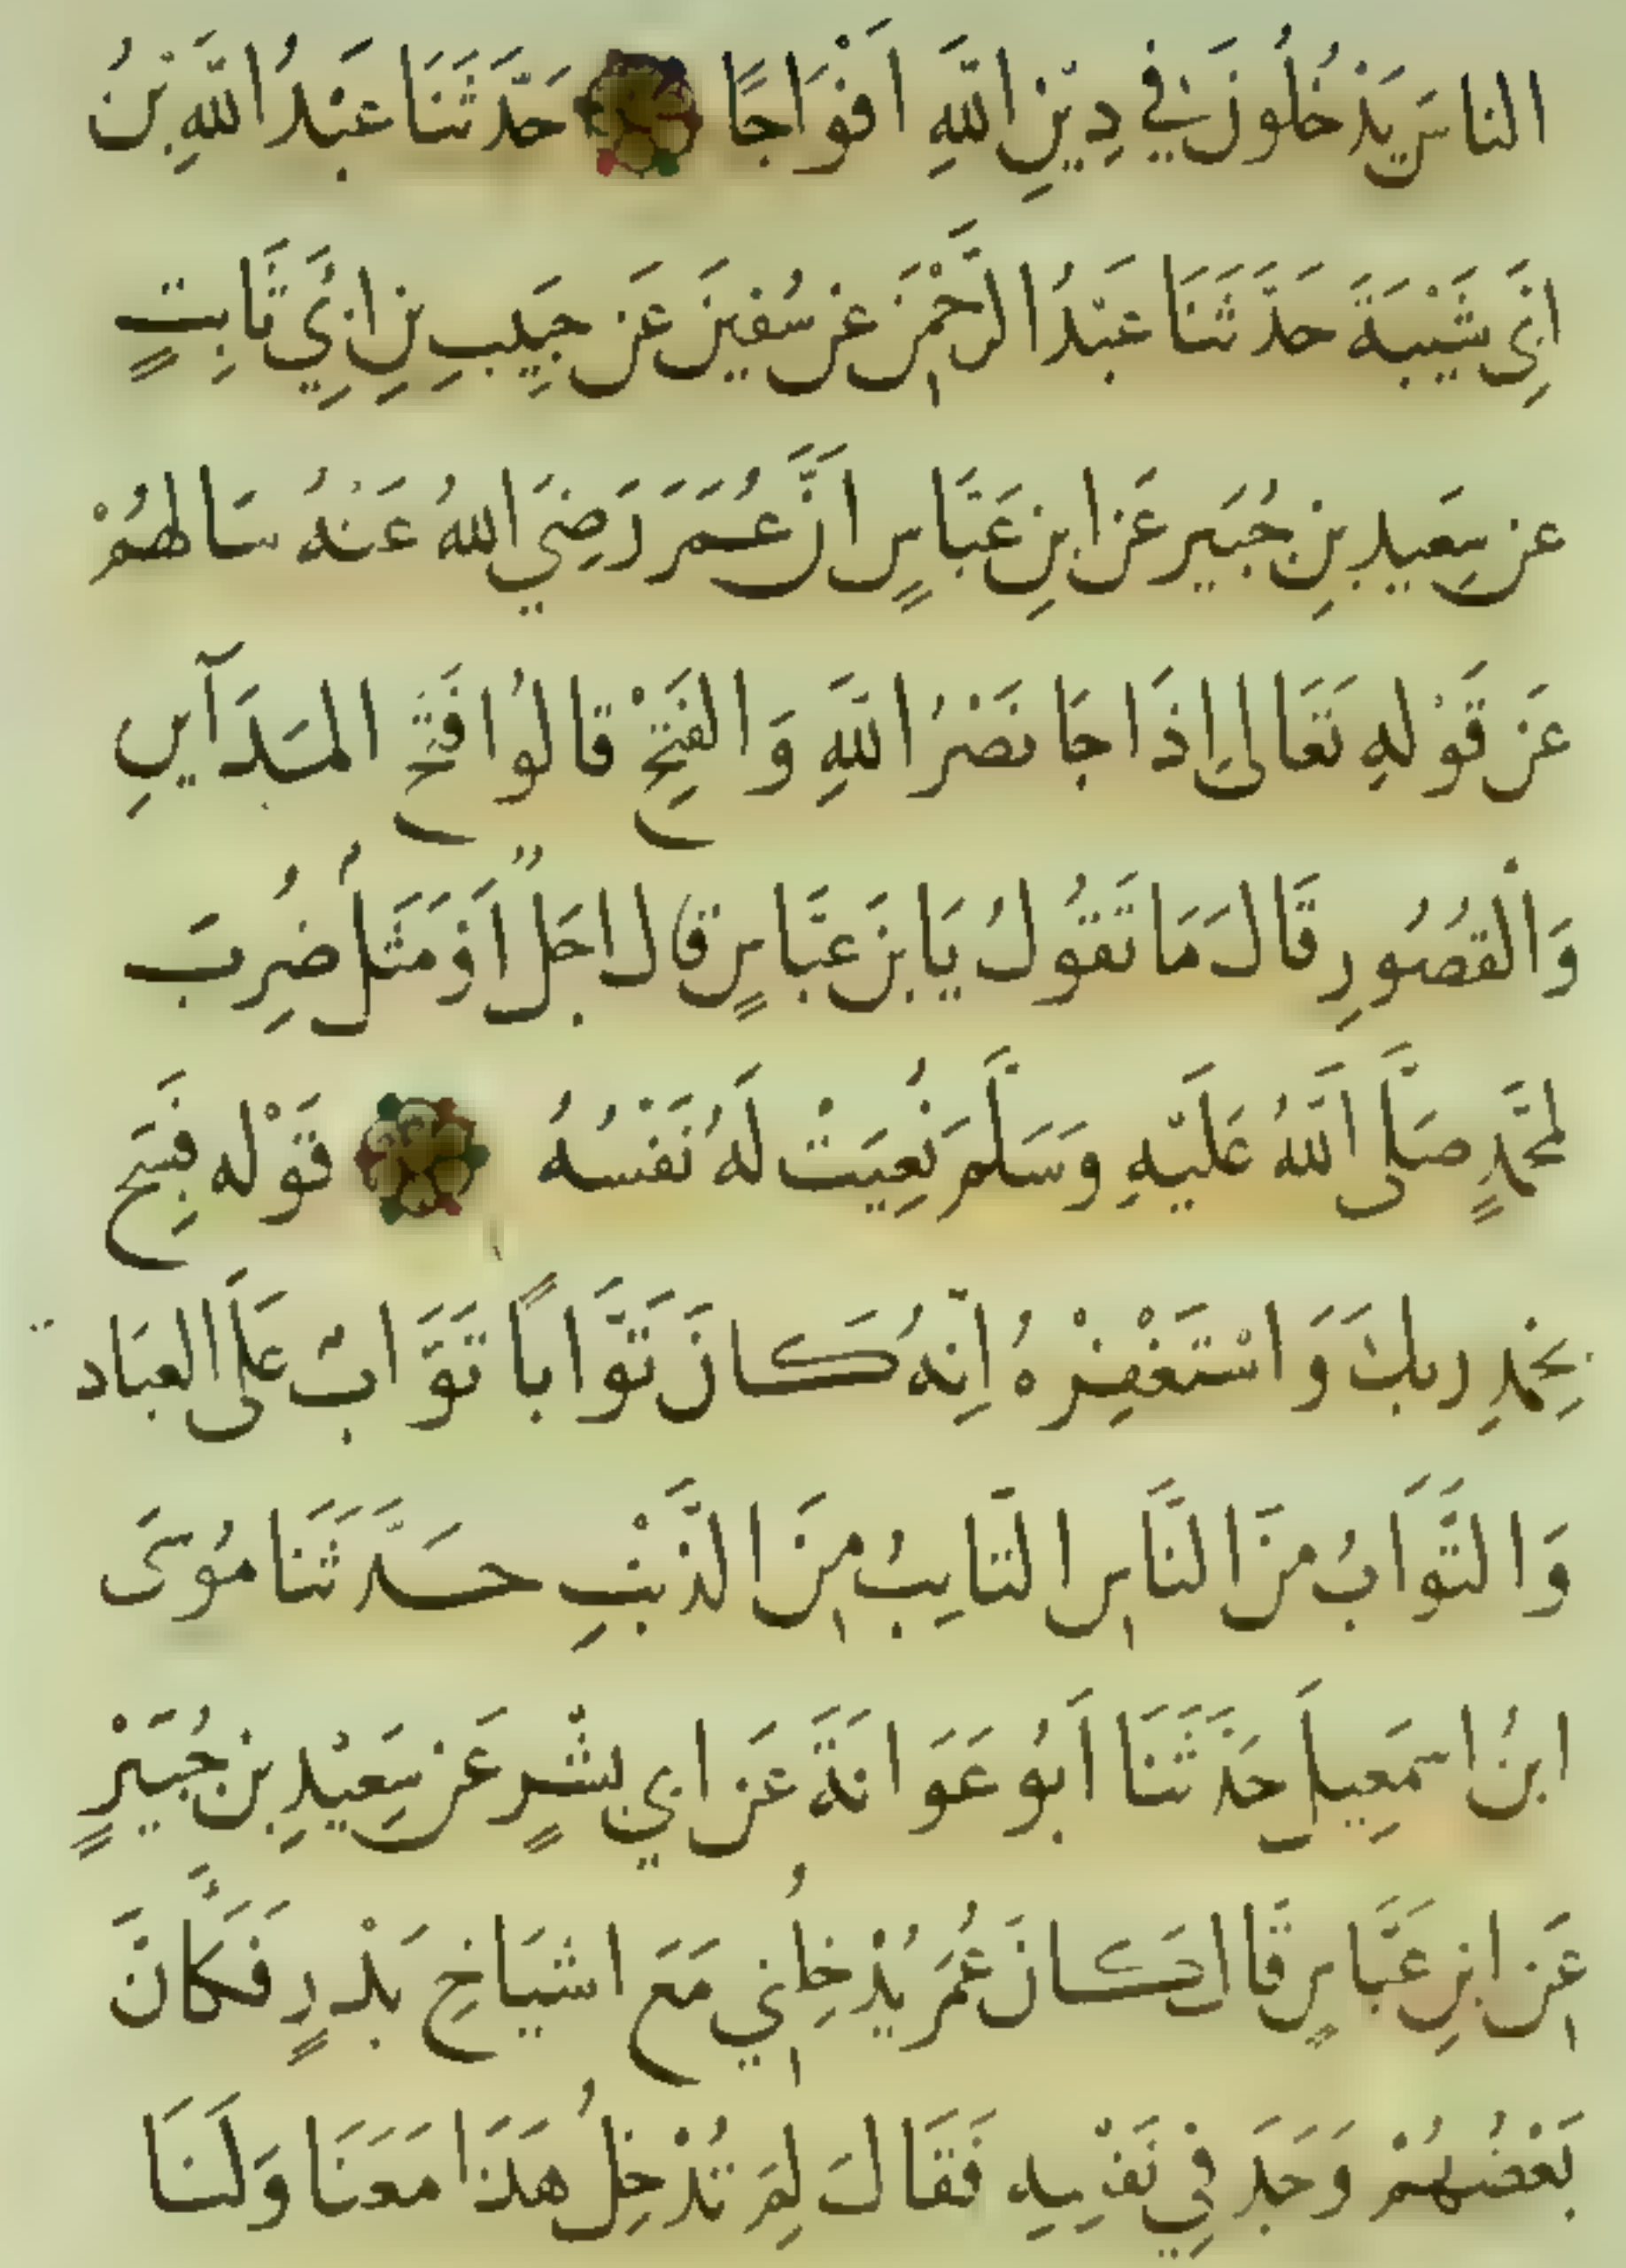 الناسَ يَدْخُلُونَ في دِيْنِ اللَّهِ اَفْوَاجًا حَدَّثَنَا عَبْدُ اللَّهِ بْنُ
اَبِي شَيْبَةَ حَدَّثَنَا عَبْدُ الرَّحْمٰنِ عَنْ سُفْيٰنَ عَنْ حَبِيْبِ بْنِ اَبِي ثَابِتٍ
عن سَعِيدِ بْنِ جُبَيرٍ عَنِ ابْنِ عَبَّاسٍ اَنَّ عُمَرَ رَضِيَ اللهُ عَنْهُ سَالَهُمْ
عَنْ قَوْلِهِ تَعَالَى اِذَا جَا نَصْرُ اللَّهِ وَالفَتْحُ قَالُوا فَتْحُ المَدَآيِنِ
وَالْقُصُورِ قَالَ مَا تَقُولُ يَا ابْنَ عَبَّاسٍ قال اجَلٌ اَوْ مَثَلٌ ضُرِبَ
لِمُحَمَّدٍ صَلَّى اللَّهُ عَلَيْهِ وَسَلَّمَ نُعِيَتْ لَهُ نَفْسُهُ قَوْله فسَبِّحْ
بِحَمْدِ ربكَ وَاسْتَغْفِرْهُ اِنَّهُ كَانَ تَوَّابًا تَوَّابٌ عَلَى العِبَاد
وَالتَّوَّابُ مِنَ النَّاسِ التَّايِبُ مِنَ الذَّنْبِ حَدَّثَنَا مُوسَى
ابْنُ اسْمَعِيلَ حَدَّثَنَا اَبُو عَوَانَةَ عَنْ ابي بِشْرٍ عَنْ سَعِيْدِ بْنِ جُبَيْرٍ
عَنِ ابْنِ عَبَّاسٍ قَالَ كَانَ عُمَرُ يُدْخِلُنِي مَعَ اشْيَاخِ بَدْرٍ فَكَأَنَّ
بَعْضَهُمْ وَجَدَ فِي نَفْسِهِ فَقَالَ لِمَ تُدْخِلُ هَذَا مَعَنَا وَلَنَا